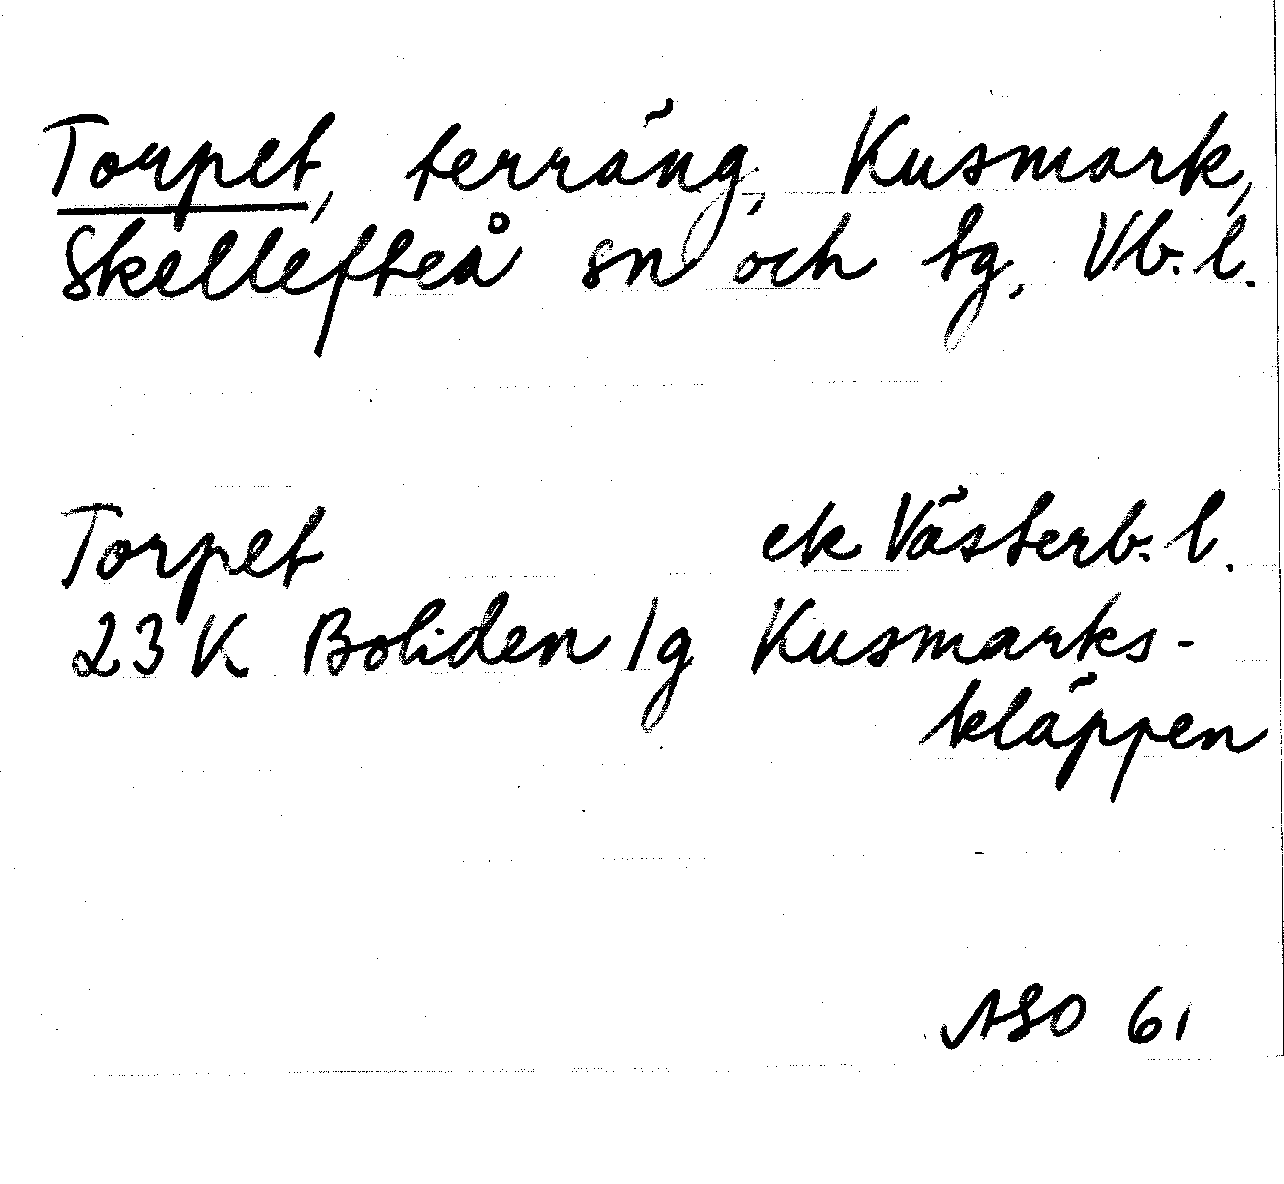 Torpet, terräng, Kusmark,
Skellefteå sn och tg. Vb. l.
Torpet ek Västerb. l.
23 K Boliden 1g Kusmarks-
kläppen
ASO 61